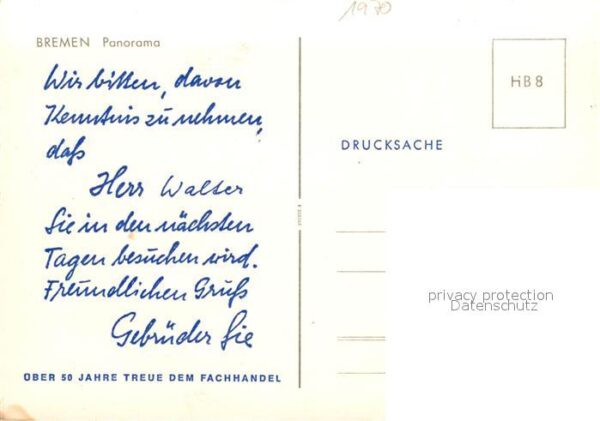 1970
BREMEN Panorama
HB 8
Wir bitten, davon
Kenntnis zu nehmen,
daß
Herr Walter
Sie in den nächsten
Tagen besuchen wird.
Freundlichen Gruß
Gebrüder Sie
ÜBER 50 JAHRE TREUE DEM FACHHANDEL
DRUCKSACHE
privacy protection
Datenschutz